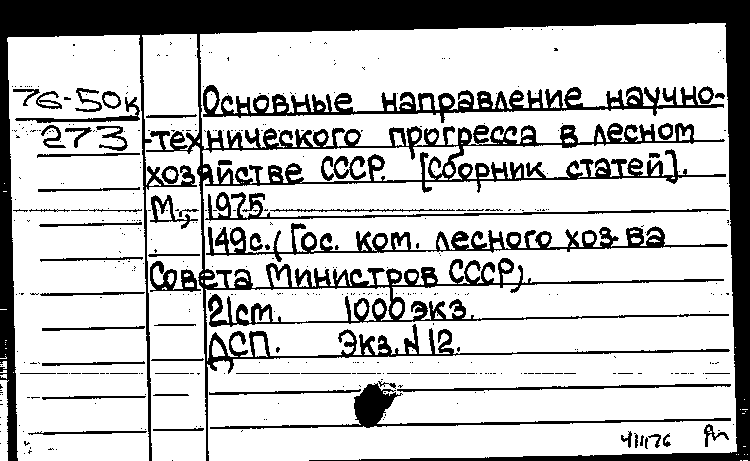 76-50к
273
Основные направление научно-
-технического прогресса в лесном
хозяйстве СССР. [Сборник статей].
М., 1975.
149с. (Гос. ком. лесного хоз-ва
Совета Министров СССР).
21см. 1000 экз.
ДСП. Экз. N 12.